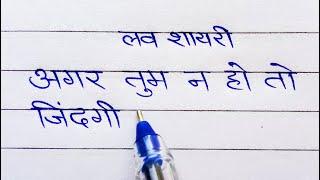 लव शायरी
अगर तुम न हो तो
जिंदगी